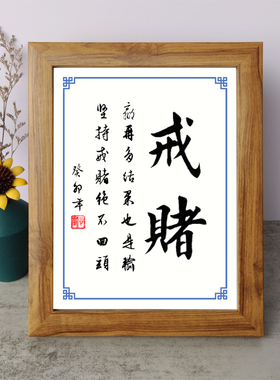 戒賭
赢再多结果也是輸
坚持戒赌绝不回頭
癸卯年